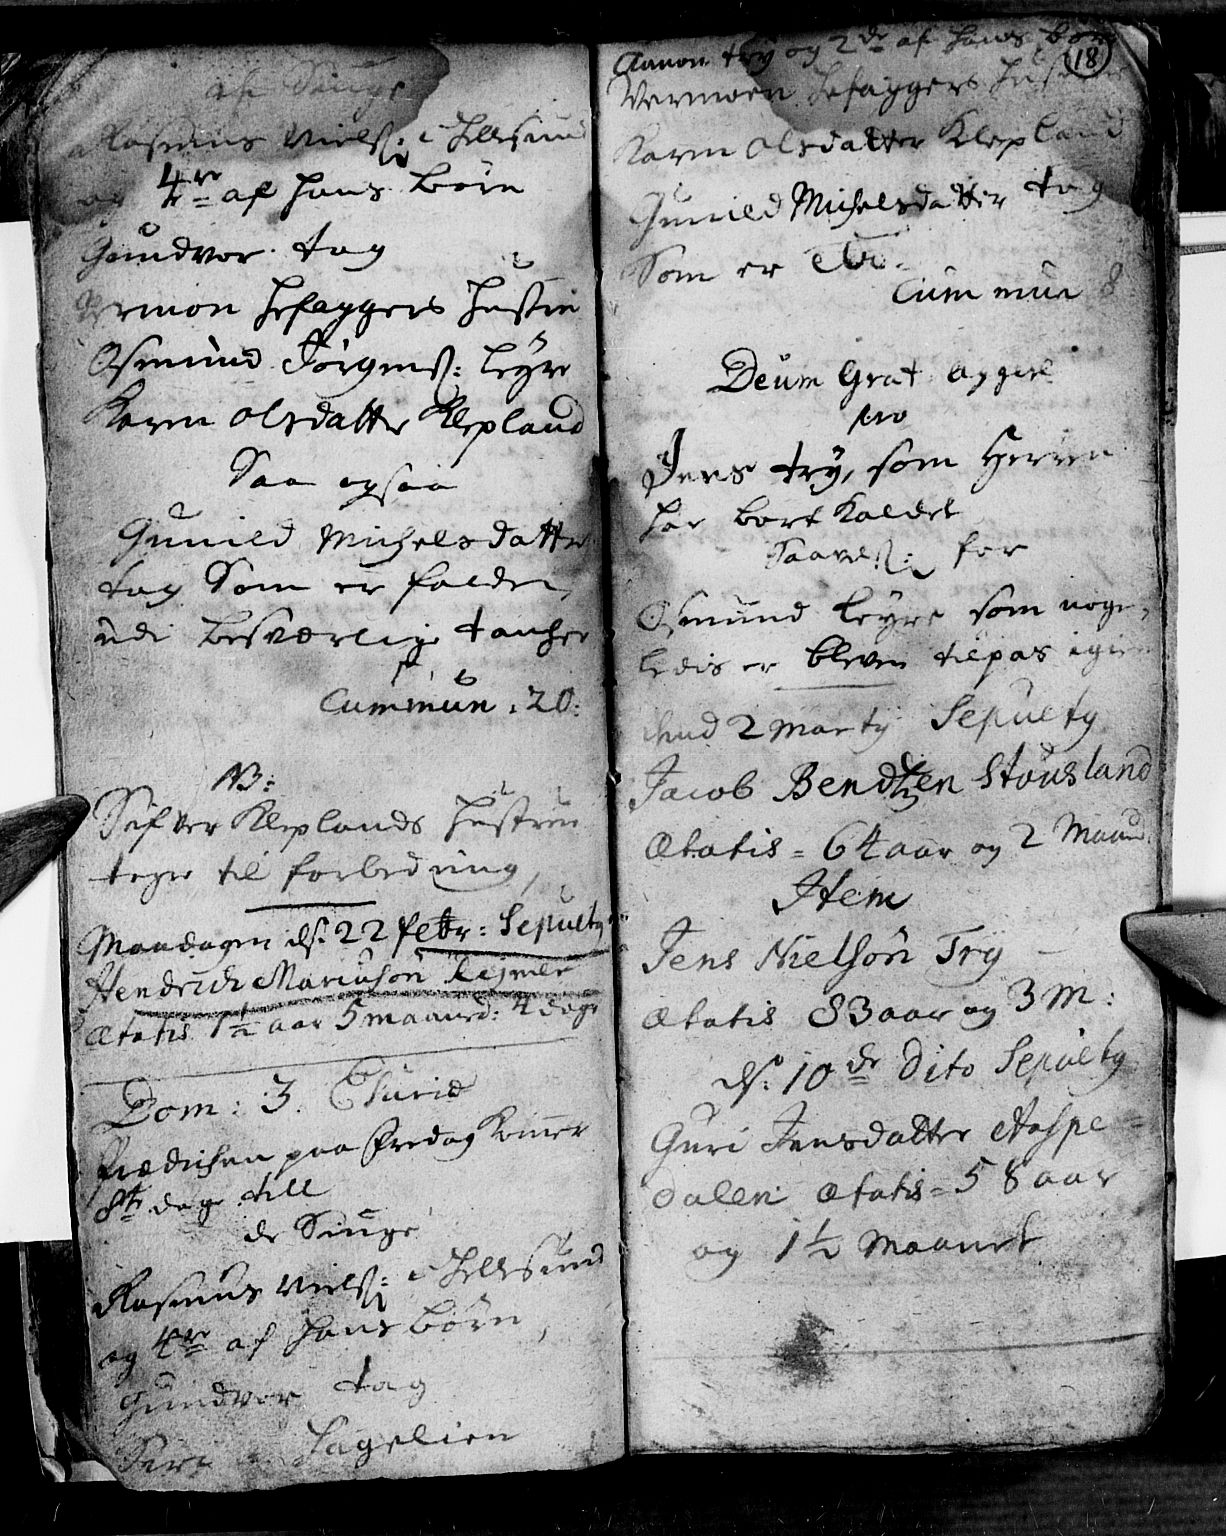 af Siuge
Rasmus Niels: i Hellesund
og 4re af hans børn
Gundvor tag
Vermon Hesaggers hustru
Osmund Jörgens: Leyre
Karen Olsdatter Klepland
Saa ogsaa
Gunild Michelsdatter
tag Som er falden
udi besværlige tancher
Cummun: 20:
NB:
Sefver Kleplands hustrue
teger til forbedring,
Mandagen ds: 22 febr: Sepulty
Hendrich Mariuson
Ætatis 1½ aar 5 maaned: 4 dage
Dom: 3. Esurie
Prædichen paa Fredag komer
8te dage till
de Siuge
Rasmus Niels: i Hellesund
og 4re af hans børn,
Gundvor tag
Siri Hagelien
18
Aanon try og 2de af hans børn
Vermoen Hesaggers hustrue
Karen Olsdatter Klepland
Gunild Michelsdatter tag
Som er
Cummun 8
Deum Grat: aggere
pro
Jens try, som Herren
har bort kaldet
Saavels: for
Osmund Leyre som noge,
ledis er bleven tilpas igien
dend 2 Marty Sepulty
Jacob Bendtzen Stousland
Ætatis = 64 aar og 2 Maand
Item
Jens Nielsön Try
Ætatis 83 aar og 3 M:
ds: 10de Dito Sepulty
Guri Jensdatter Aaspe=
dalen Ætatis = 58 aar
og 1½ Maanet